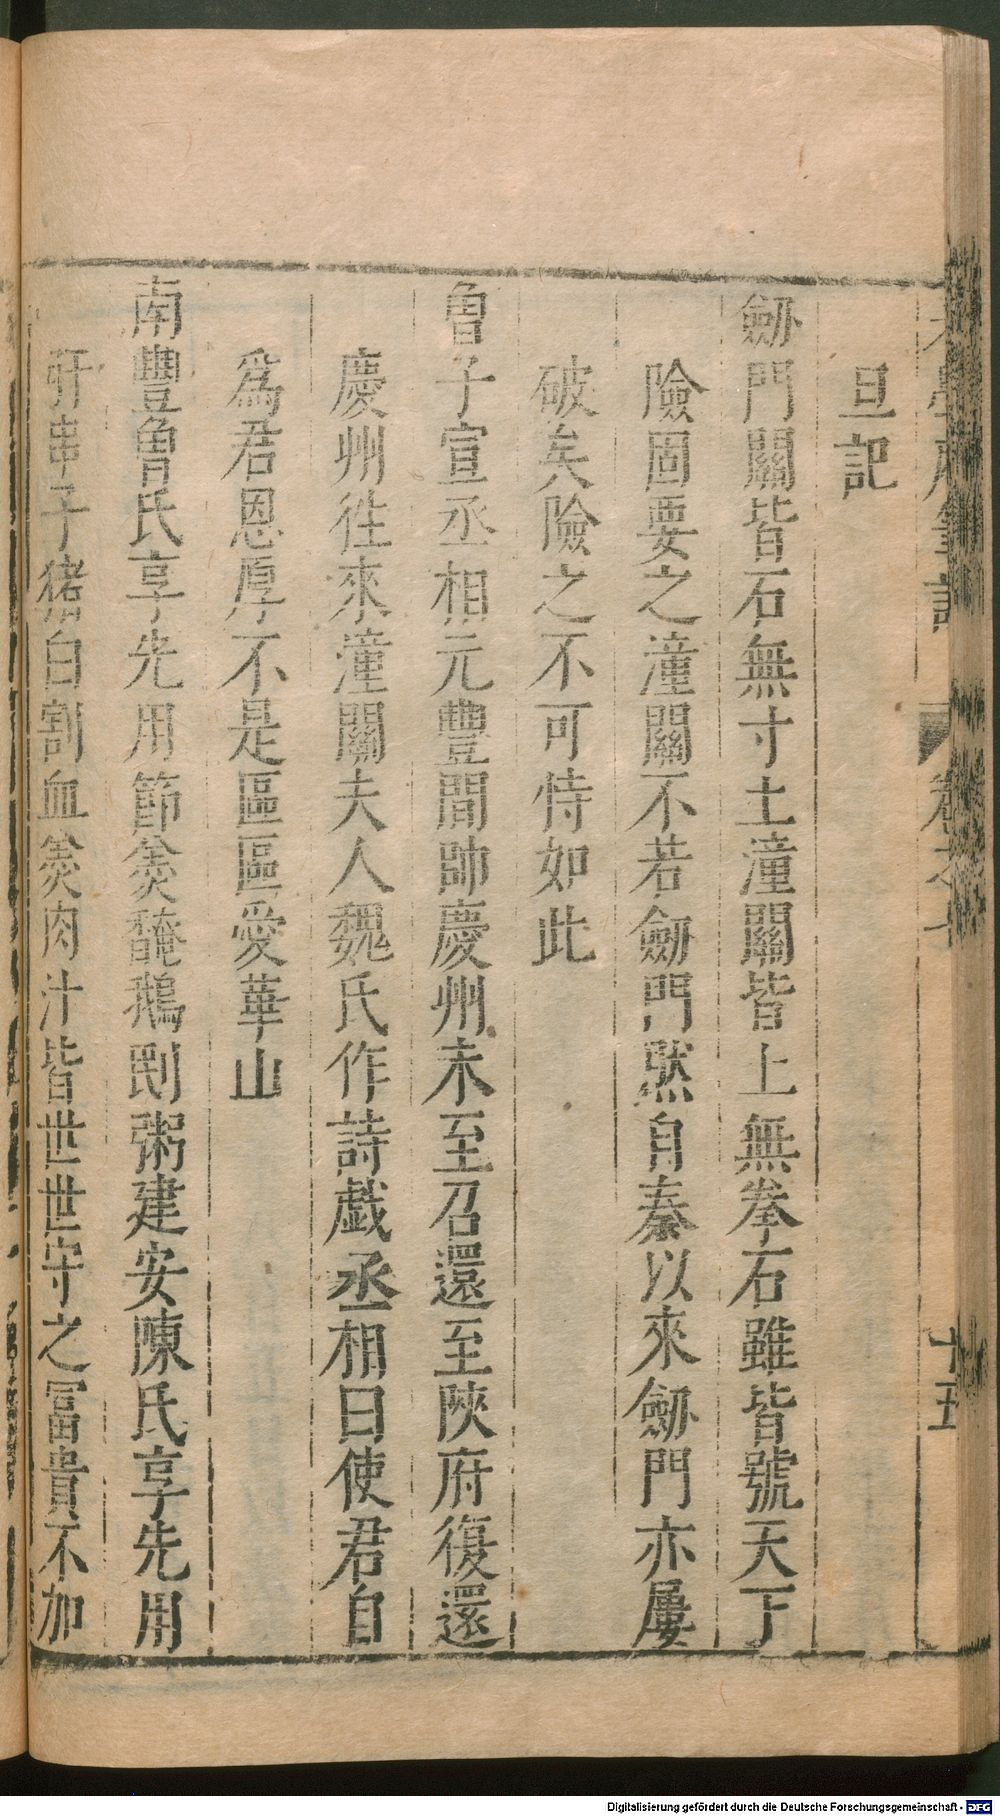 老學庵筆記 卷之七 十五
旦記
劒門關皆石無寸土潼關皆上無拳石雖皆號天下
險固要之潼關不若劒門然自秦以來劒門亦屢
破矣險之不可恃如此
曾子宣丞相元豐間帥慶州未至召還至陜府復還
慶州徃來潼關夫人魏氏作詩戯丞相曰使君自
爲君恩厚不是區區愛華山
南豐曾氏享先用節羮馣鵝粥建安陳氏享先用
肝串子猪白割血羮肉汁皆世世守之冨貴不加
Digitalisierung gefördert durch die Deutsche Forschungsgemeinschaft - DFG